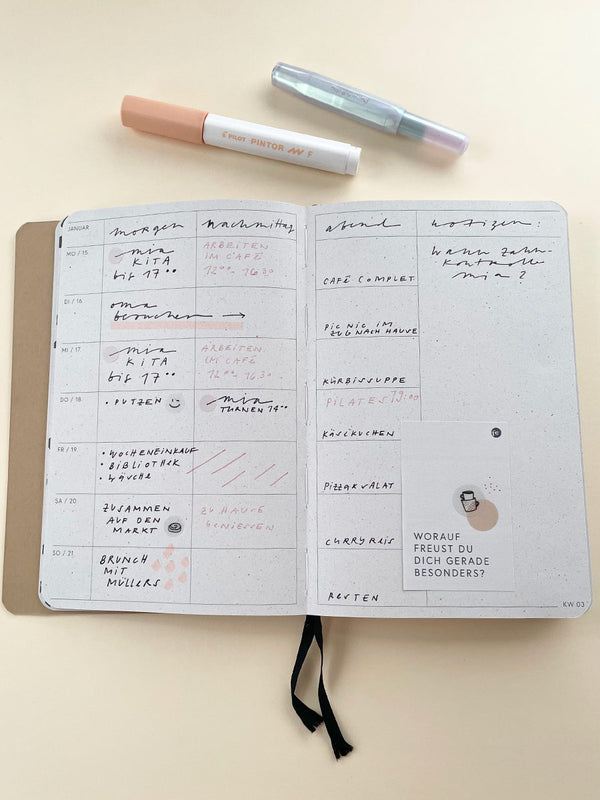 PILOT PINTOR F
JANUAR morgen nachmittag abend notizen:
MO / 15
mia
KITA
bis 17°°
ARBEITEN
IM CAFÉ
12°° - 16 30
CAFÉ COMPLET
wann zahn-
kontrolle
mia?
DI / 16
oma
besuchen →
PICNIC IM
ZUG NACH HAUSE
MI / 17
mia
KITA
bis 17°°
ARBEITEN
IM CAFÉ
12°° - 16 30
KÜRBISSUPPE
DO / 18
• PUTZEN
mia
TURNEN 14°°
PILATES 19:00
KÄSEKUCHEN
FR / 19
• WOCHENEINKAUF
• BIBLIOTHEK
• WÄSCHE
PIZZA & SALAT
SA / 20
ZUSAMMEN
AUF DEN
MARKT
ZU HAUSE
GENIESSEN
CURRY REIS
SO / 21
BRUNCH
MIT
MÜLLERS
RESTEN
WORAUF
FREUST DU
DICH GERADE
BESONDERS?
KW 03